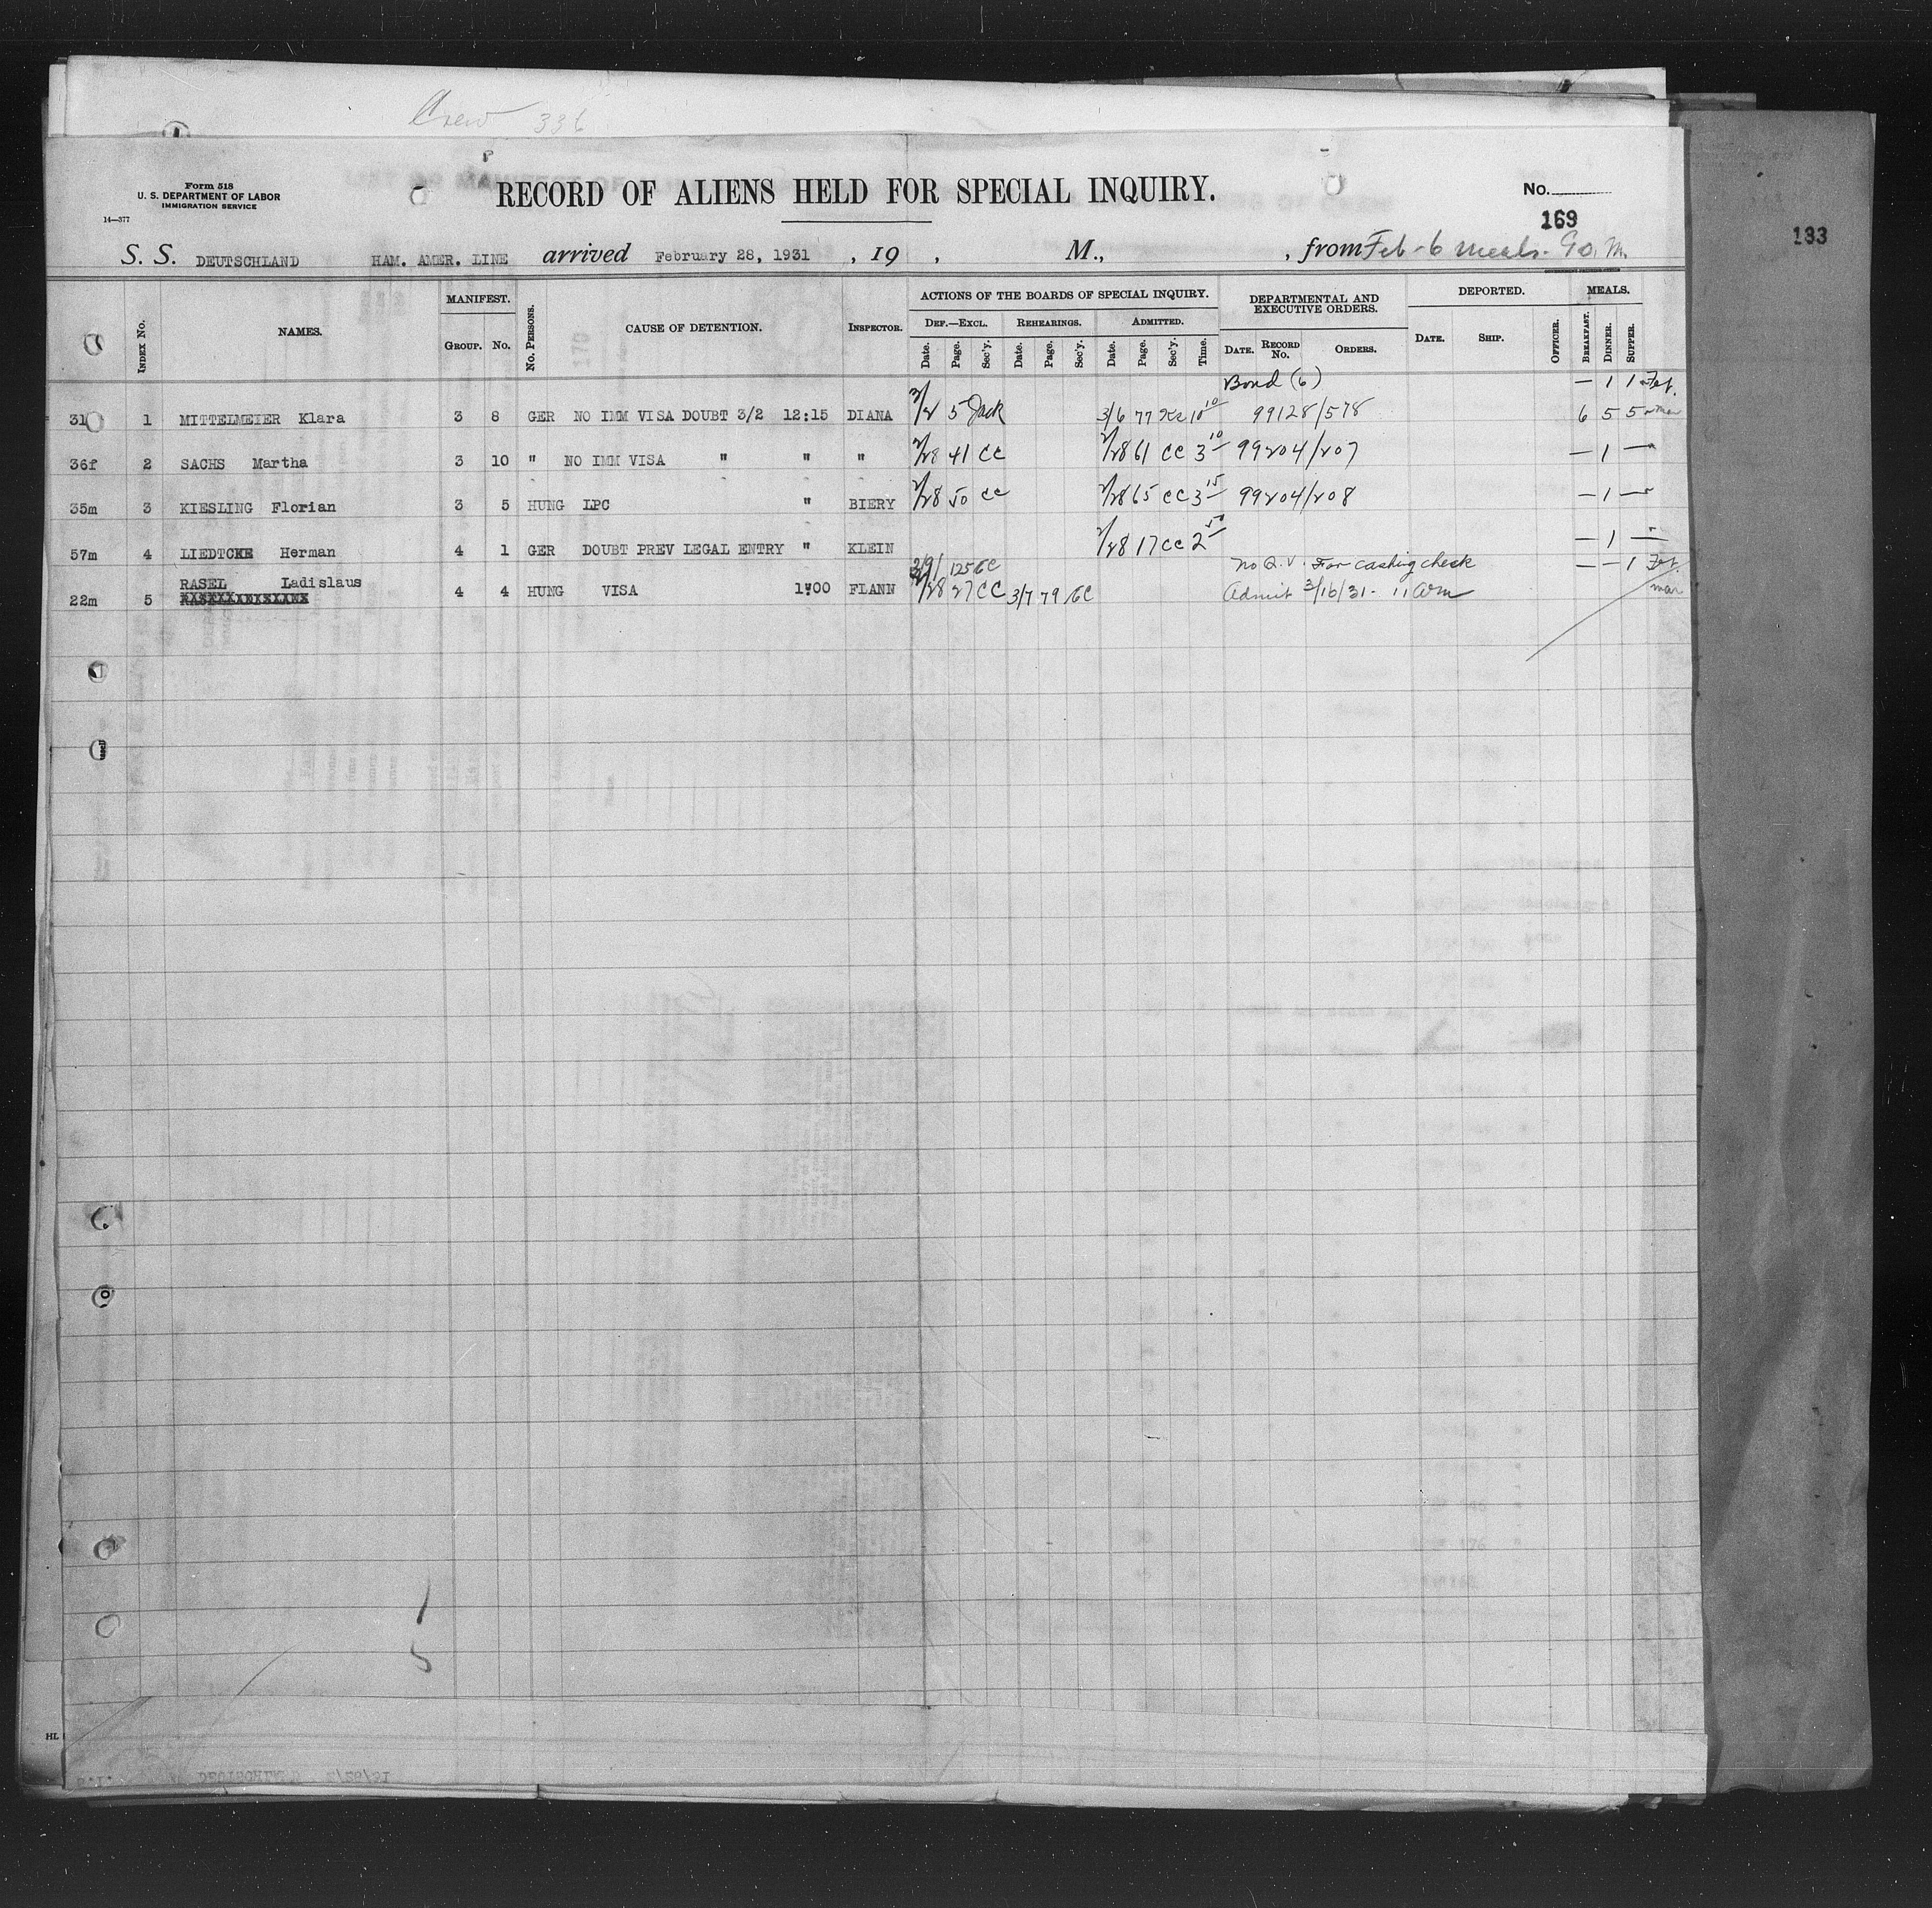 Crew 336
Form 518
U. S. DEPARTMENT OF LABOR
IMMIGRATION SERVICE
14—377
RECORD OF ALIENS HELD FOR SPECIAL INQUIRY.
No.
169
133
S. S. DEUTSCHLAND HAM. AMER. LINE arrived February 28, 1931 , 19 , M., , from Feb - 6 meals.
INDEX No. NAMES. MANIFEST. GROUP. No. No. PERSONS. CAUSE OF DETENTION. INSPECTOR. ACTIONS OF THE BOARDS OF SPECIAL INQUIRY. DEPARTMENTAL AND EXECUTIVE ORDERS. DEPORTED. MEALS.
DEF.—EXCL. REHEARINGS. ADMITTED.
Date. Page. Sec'y. Date. Page. Sec'y. Date. Page. Sec'y. Time. DATE. RECORD No. ORDERS. DATE. SHIP. OFFICER. BREAKFAST. DINNER. SUPPER.
Bond (6) — 1 1 Feb.
31 1 MITTELMEIER Klara 3 8 GER NO IMM VISA DOUBT 3/2 12:15 DIANA 3/6 77 10 10 99128/578 6 5 5 Mar
36f 2 SACHS Martha 3 10 " NO IMM VISA " " " 2/28 41 CC 2/28 61 CC 3 10 99204/207 — 1 —
35m 3 KIESLING Florian 3 5 HUNG LPC " BIERY 2/28 50 CC 2/28 65 CC 3 15 99204/208 — 1 —
57m 4 LIEDTCKE Herman 4 1 GER DOUBT PREV LEGAL ENTRY " KLEIN 2/28 17 CC 2 50 — 1 —
125 GC For cashing check — — 1 Feb.
RASEL Ladislaus
22m 5 4 4 HUNG VISA FLANN 2/28 27 CC 3/7 79 GC Admit 3/16/31 - 11 am Mar
1
5
HL
DEUTSCHLAND 2/28/31